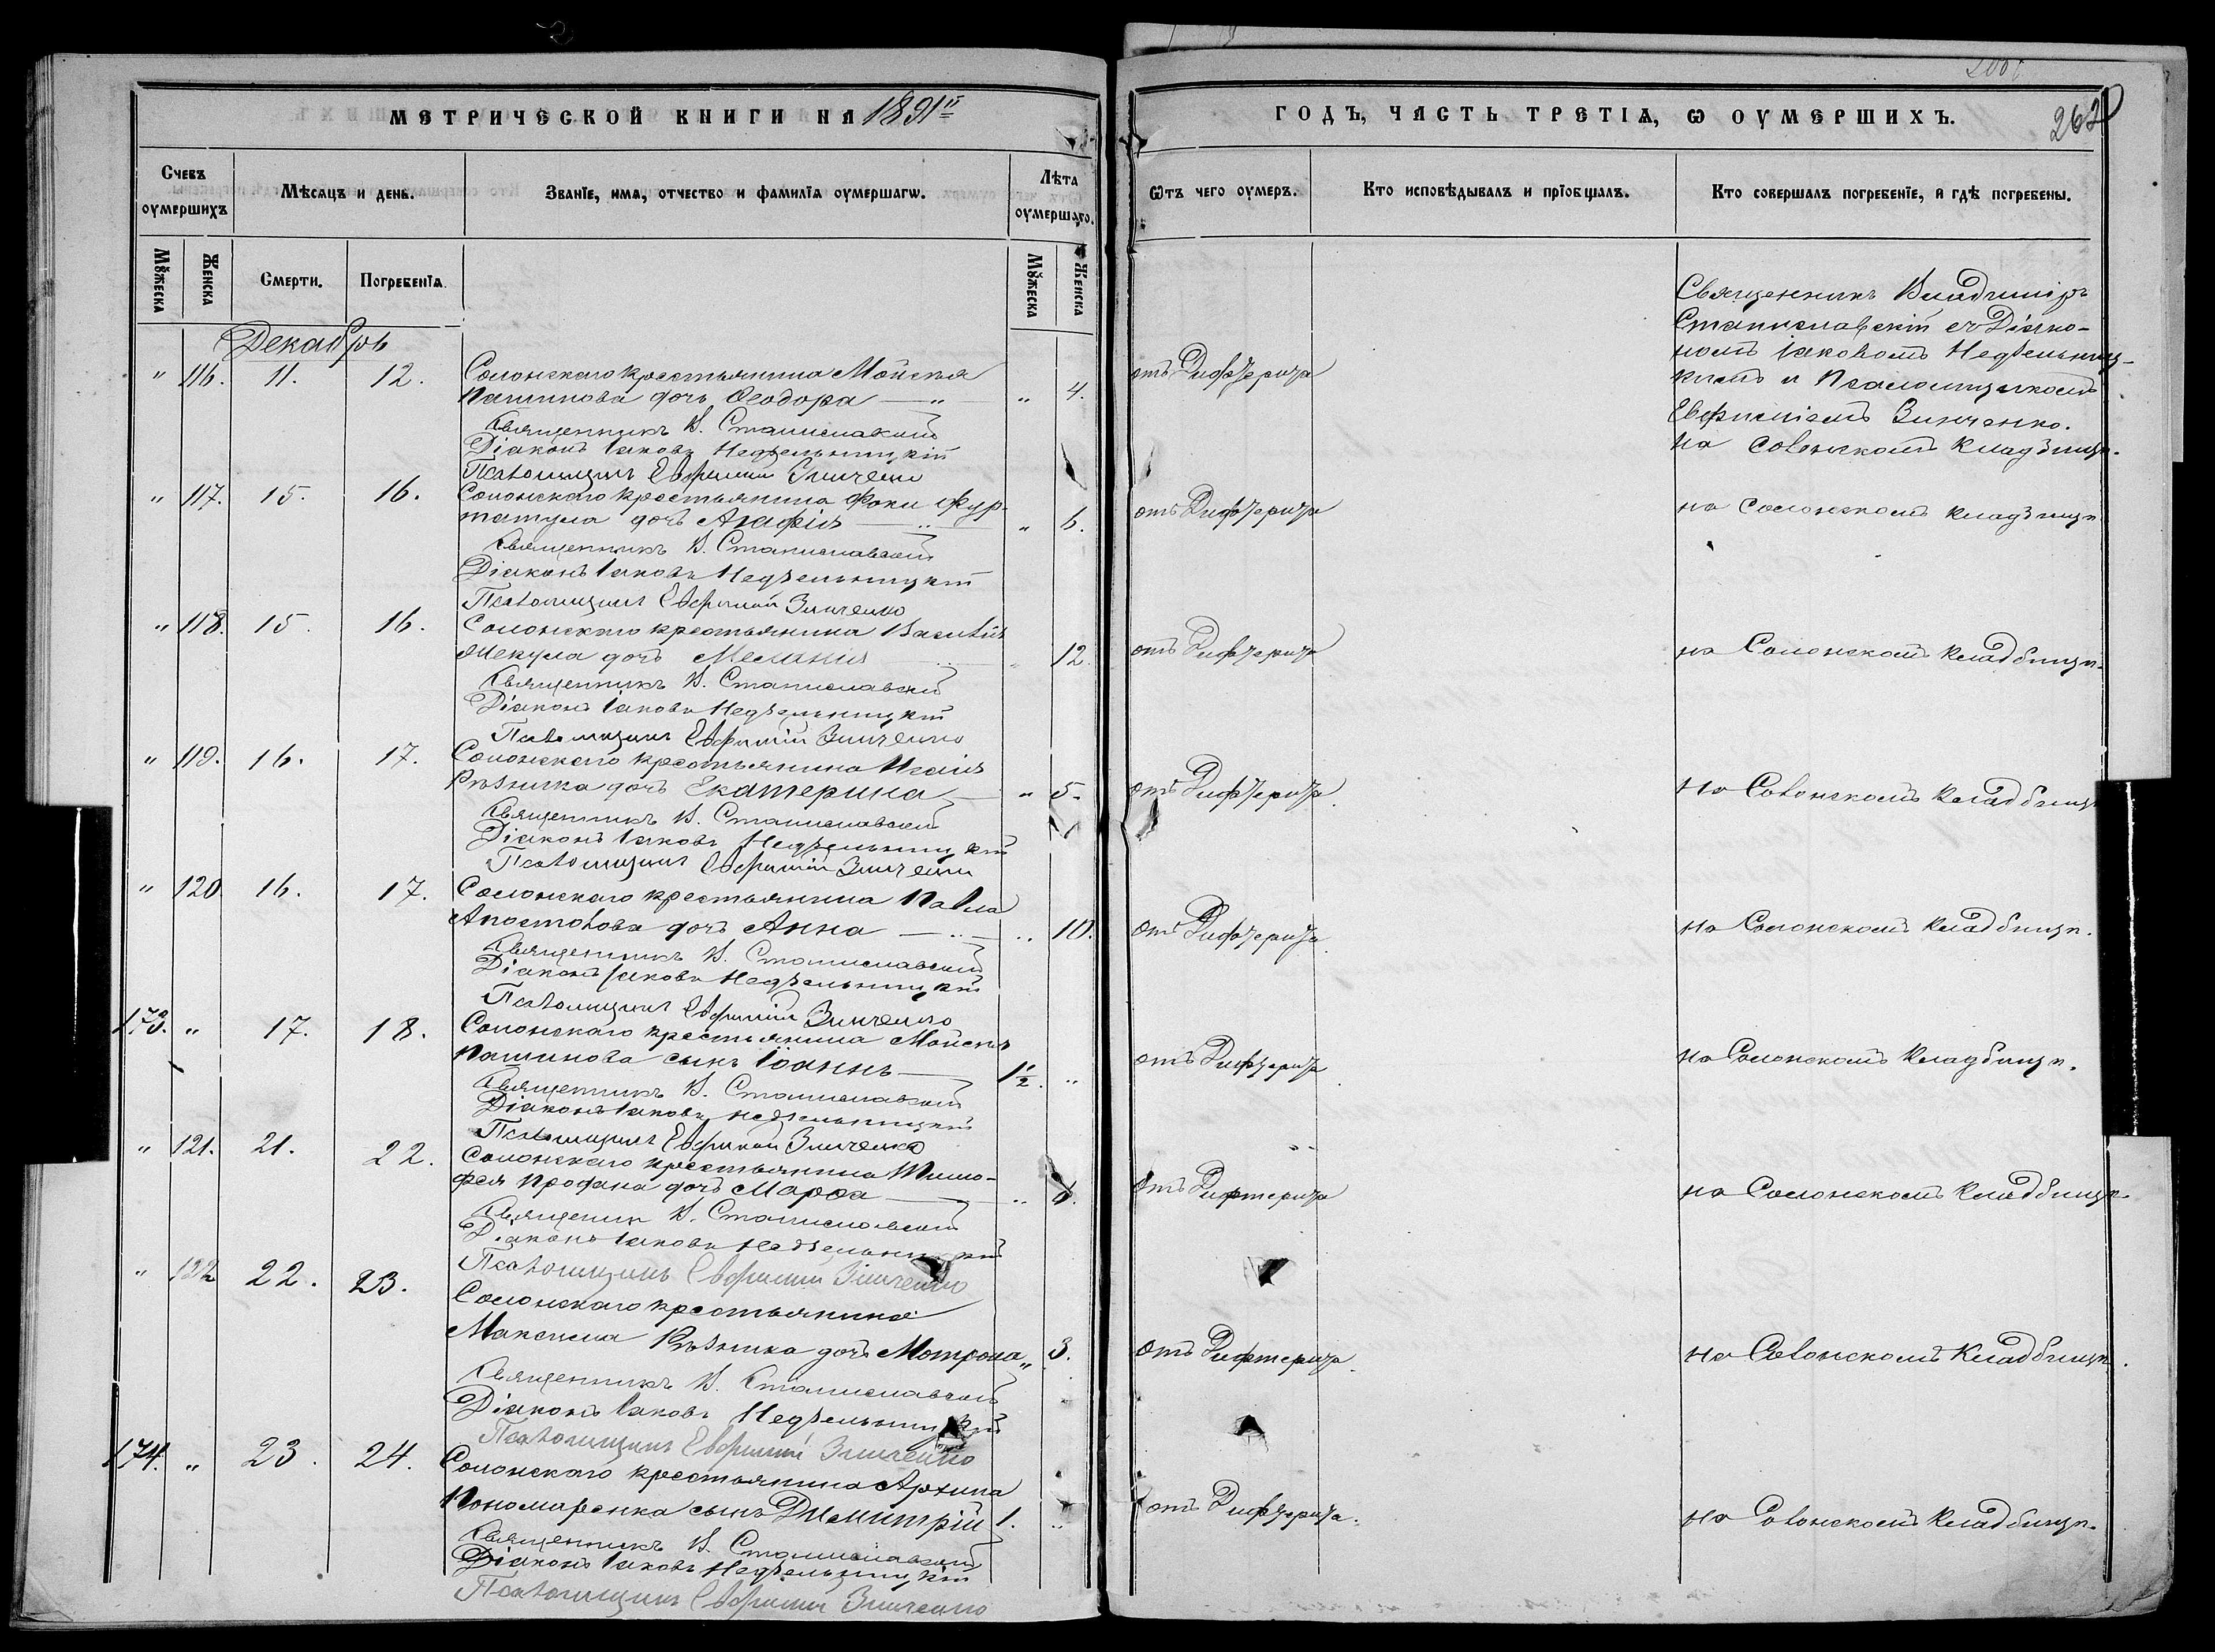 МЕТРИЧЕСКОЙ КНИГИ НА 1891й
ГОДЪ, ЧАСТЬ ТРЕТІѦ, Ѡ ОУМЕРШИХЪ.
262
Счевъ оумершихъ
Мѣсѧцъ и день.
Званїе, имѧ, отчество и фамилїѧ оумершагѡ.
Лѣта оумершаго.
Ѿтъ чего оумеръ.
Кто исповѣдывалъ и прїобщалъ.
Кто совершалъ погребенїе, и гдѣ погребены.
Мꙋжеска
Женска
Смерти.
Погребенїѧ.
Мꙋжеска
Женска
Декабрь
" 116. 11. 12. Солонскаго крестьянина Мойсея
Пашинова дочь Ѳеодора — " — " 4. отъ Дифтерита
Священникъ В. Станиславскій
Діаконъ Іаковъ Недзельницкій
Псаломщикъ Евфимій Зинченко
Священникъ Владиміръ
Станиславскій съ Діако-
номъ Іаковомъ Недзельниц-
кимъ и Псаломщикомъ
Евфиміемъ Зинченко.
на Солонскомъ кладбищѣ.
" 117. 15. 16. Солонскаго крестьянина Фоки Фур-
татула дочь Агафія — " — " 6. отъ Дифтерита на Солонскомъ кладбищѣ
Священникъ В. Станиславскій
Діаконъ Іаковъ Недзельницкій
Псаломщикъ Евфимій Зинченко
" 118. 15. 16. Солонскаго крестьянина Василія
дочь Меланія — " — " 12. отъ Дифтерита на Солонскомъ кладбищѣ.
Священникъ В. Станиславскій
Діаконъ Іаковъ Недзельницкій
Псаломщикъ Евфимій Зинченко
" 119. 16. 17. Солонскаго крестьянина Исаія
Рѣзника дочь Екатерина — " 5. отъ Дифтерита. на Солонскомъ кладбищѣ
Священникъ В. Станиславскій
Діаконъ Іаковъ Недзельницкій
Псаломщикъ Евфимій Зинченко
" 120 16. 17. Солонскаго крестьянина Павла
Апостолова дочь Анна — " — " 10. отъ Дифтерита. на Солонскомъ кладбищѣ.
Священникъ В. Станиславскій
Діаконъ Іаковъ Недзельницкій
Псаломщикъ Евфимій Зинченко
173. " 17. 18. Солонскаго крестьянина Мойсея
Пашинова сынъ Іоаннъ — 1½. " отъ Дифтерита. на Солонскомъ кладбищѣ.
Священникъ В. Станиславскій
Діаконъ Іаковъ Недзельницкій
Псаломщикъ Евфимій Зинченко
" 121. 21. 22. Солонскаго крестьянина Тимо-
фея Профана дочь Марѳа — " 6. отъ Дифтерита на Солонскомъ кладбищѣ.
Священникъ В. Станиславскій
Діаконъ Іаковъ Недзельницкій
Псаломщикъ Евфимій Зинченко
" 122 22. 23. Солонскаго крестьянина
Максима Рѣзника дочь Мотрона " 3. отъ Дифтерита. на Солонскомъ кладбищѣ.
Священникъ В. Станиславскій
Діаконъ Іаковъ Недзельницкій
Псаломщикъ Евфимій Зинченко
174. " 23. 24. Солонскаго крестьянина Архипа
Пономаренка сынъ Димитрій 1. " отъ Дифтерита. на Солонскомъ кладбищѣ.
Священникъ В. Станиславскій
Діаконъ Іаковъ Недзельницкій
Псаломщикъ Евфимій Зинченко